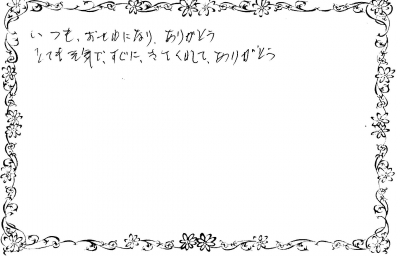 いつも、おせわになり、ありがとう
とても元気で、すぐに、きてくれて、ありがとう